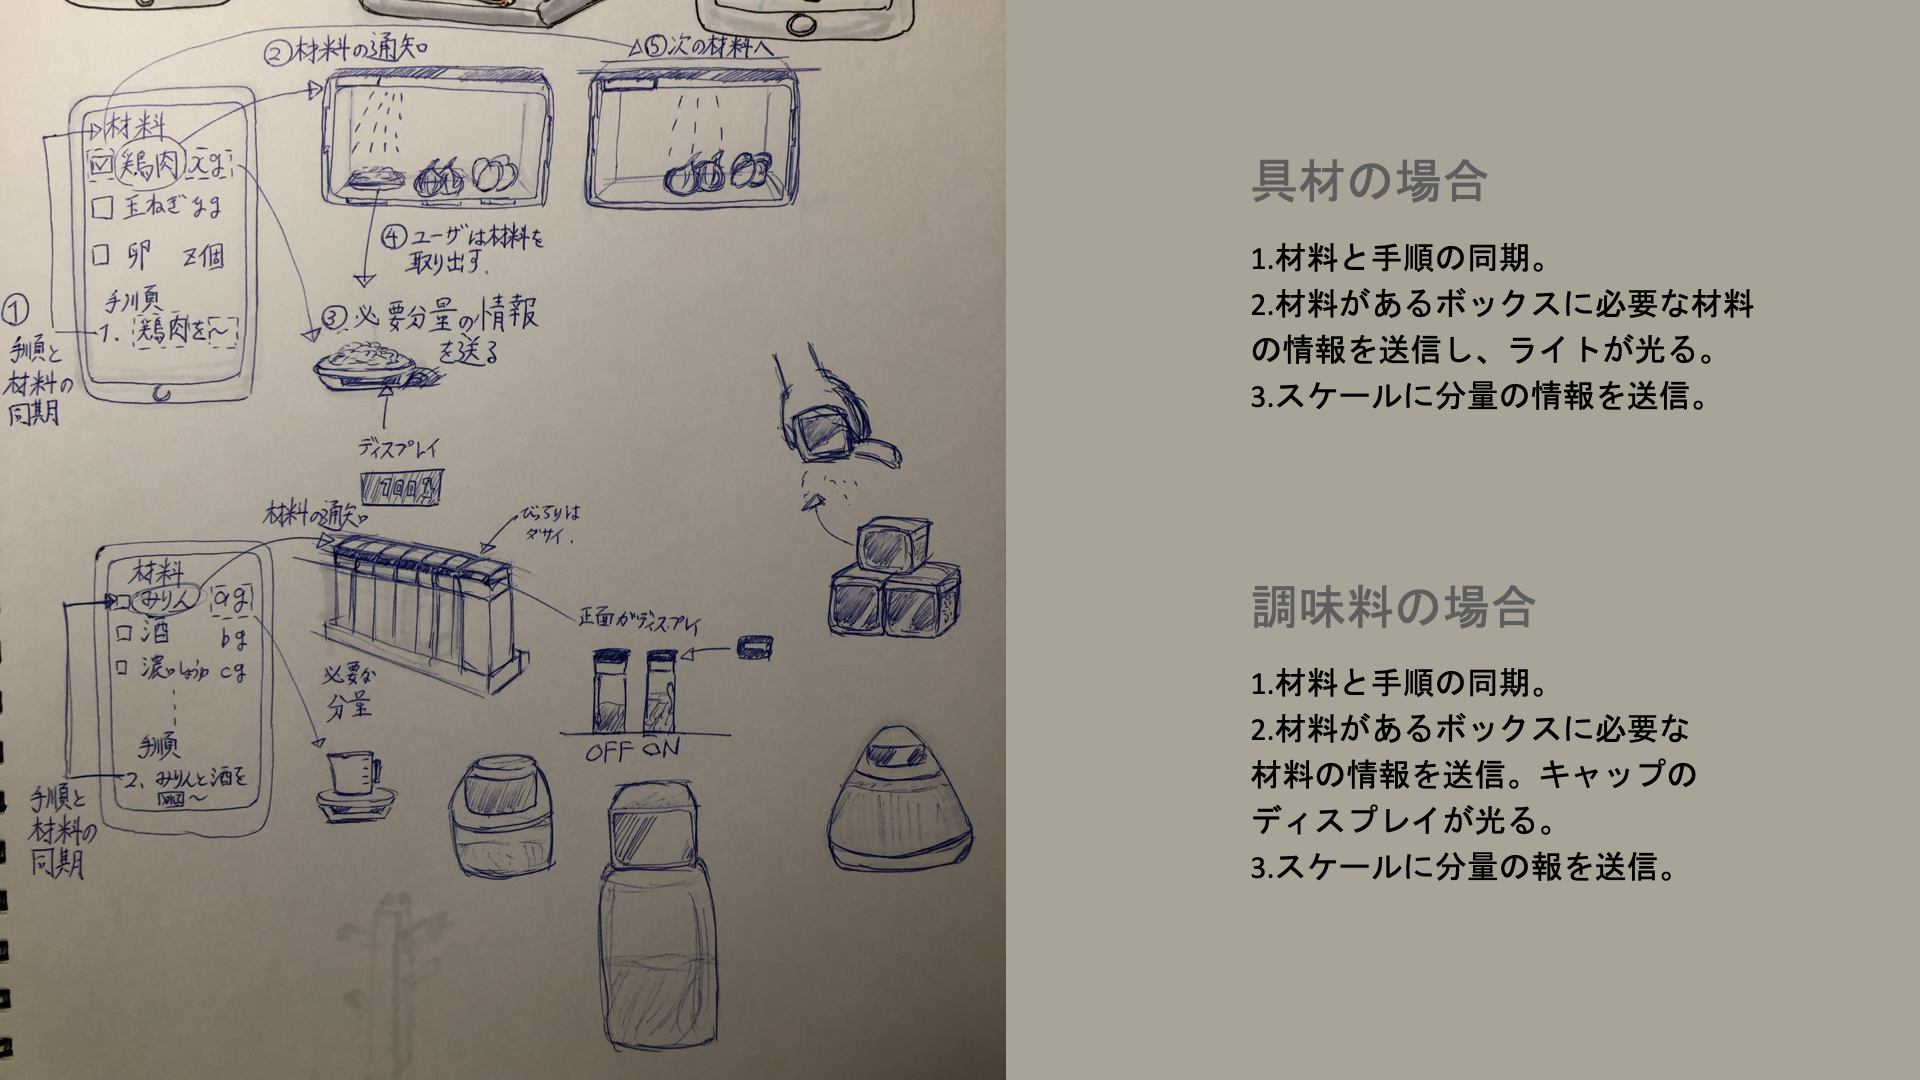 ②材料の通知
⑤次の材料へ
材料
鶏肉 xg
玉ねぎ yg
卵 z個
手順
1. 鶏肉を〜
①
手順と
材料の
同期
④ユーザは材料を
取り出す.
③必要分量の情報
を送る
ディスプレイ
材料の通知
びっちりは
ダサイ.
材料
みりん ag
酒 bg
cg
手順
2. みりんと酒を
〜
手順と
材料の
同期
必要な
分量
正面がディスプレイ
OFF ON
具材の場合
1.材料と手順の同期。
2.材料があるボックスに必要な材料
の情報を送信し、ライトが光る。
3.スケールに分量の情報を送信。
調味料の場合
1.材料と手順の同期。
2.材料があるボックスに必要な
材料の情報を送信。キャップの
ディスプレイが光る。
3.スケールに分量の報を送信。